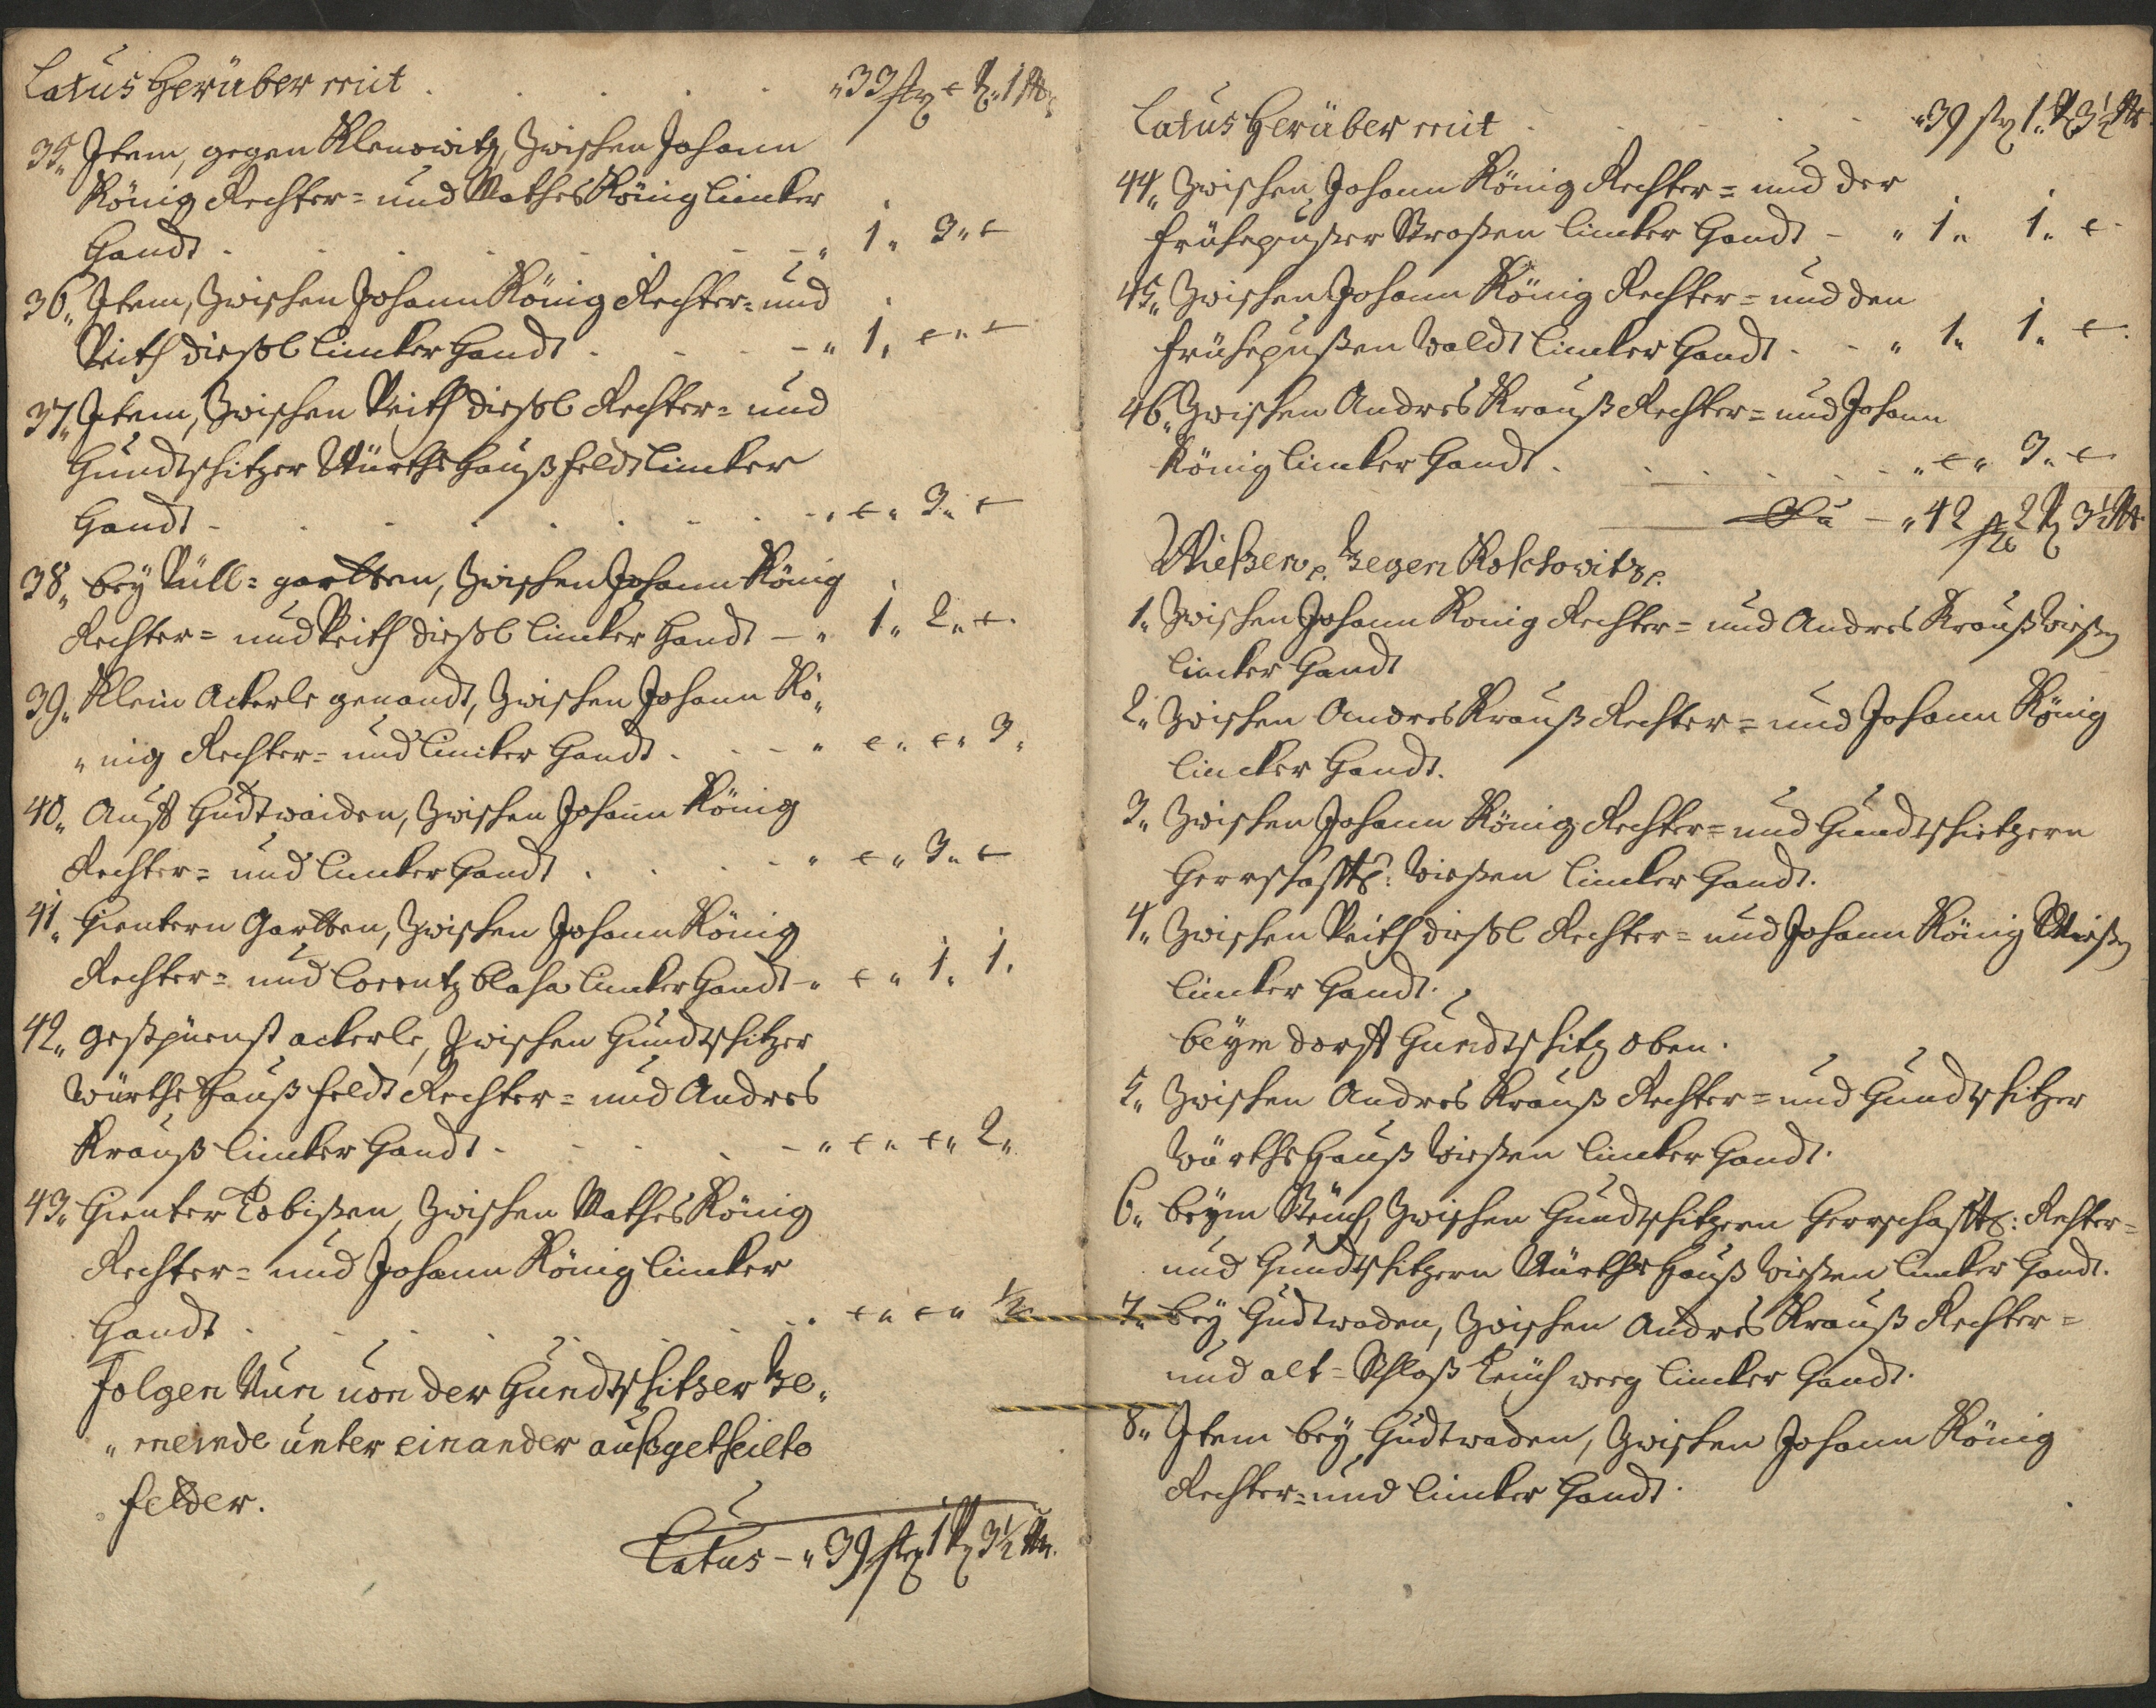 Latus Herüber mit . . . . . „ 33 str „ – V. „ 1 M.
35„ Item, gegen Klenowitz, Zwischen Johann
König Rechter= und Mathes König lincker
Handt . . . . . – – „ 1„ 3„ –
36„ Item, Zwischen Johann König Rechter= und
Veith dießl lincker Handt . . . – „ 1„ –„ –
37„ Item, Zwischen Veith dießl Rechter= und
Gundtschitzer Würths Hauß Feldt lincker
Handt . . . . . . – „ –„ 3„ –
38„ bey Güll=gartten, Zwischen Johann König
Rechter= und Veith dießl lincker Handt – „ 1„ 2„ –
39„ Klein Ackerle genandt, Zwischen Johann Kö„
„nig Rechter= und lincker Handt . . – „ –„ –„ 3„
40„ Auff Hudtwaiden, Zwischen Johann König
Rechter= und lincker Handt . . . – „ –„ 3„ –
41„ Hientern Gartten, Zwischen Johann König
Rechter= und Lorentz Blaha lincker Handt – „ –„ 1„ 1„
42„ ackerle, Zwischen Gundtschitzer
Würths Hauß Feldt Rechter= und Andres
Krauß lincker Handt . . . – „ –„ –„ 2„
43„ Hienter Zwischen Mathes König
Rechter= und Johann König lincker
Handt . . . . . . „ –„ –„ ½
Folgen Nun von der Gundtschitzer Ge„
„meinde unter einander außgetheilte
Felder.
Latus – „ 39 str 1 V 3½ M.
Latus Herüber mit . . . . „ 39 str 1„ V 3½ M.
44„ Zwischen Johann König Rechter= und der
Straßen lincker Handt – „ 1„ 1„ –
45„ Zwischen Johann König Rechter= und den
Waldt lincker Handt . – „ 1„ 1„ –
46„ Zwischen Andres Krauß Rechter= und Johann
König lincker Handt . . . . . „ –„ 3„ –
– „ 42 str 2 V 3½ M.
Wießen, Gegen
1„ Zwischen Johann König Rechter= und Andres Krauß Wießen
lincker Handt
2„ Zwischen Andres Krauß Rechter= und Johann König
lincker Handt.
3„ Zwischen Johann König Rechter= und Gundtschitzern
Herrschafftl: Wießen lincker Handt.
4„ Zwischen Veith dießl Rechter= und Johann König Wießen
lincker Handt.
beym dorff Gundtschitz oben.
5„ Zwischen Andres Krauß Rechter= und Gundtschitzer
Würths Hauß Wießen lincker Handt.
6„ beym Zwischen Gundtschitzern Herrschafftl: Rechter=
und Gundtschitzern Würths Hauß Wießen lincker Handt.
7„ bey Hudtwaden, Zwischen Andres Krauß Rechter=
und alt=Schloß Teüch weeg lincker Handt.
8„ Item bey Hudtwaden, Zwischen Johann König
Rechter= und lincker Handt.